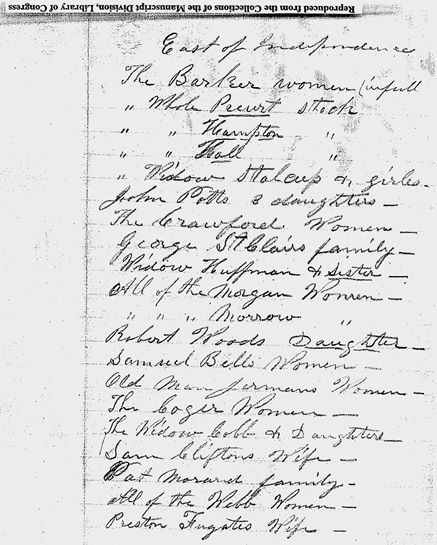 Reproduced from the Collections of the Manuscript Division, Library of Congress
East of Independence
The Barker women (in full
" Whole Prewit stock
" " Hampton "
" " Hall "
" Widow Stalcup & girles -
John Potts 3 daughters -
The Crawford Women -
George St Clairs family -
Widow Huffman & Sister -
All of the Morgan Women -
" " " Morrow "
Robert Woods Daughter -
Samuel Bells Women -
Old Man Jermans Women -
The Coger Women -
The Widow Cobb & Daughters -
Sam Cliftons Wife -
Pat family -
All of the Webb Women -
Preston Fugates Wife -